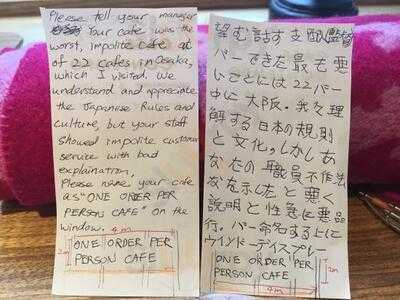 Please tell your manager
Your cafe was the
worst, impolite cafe at
of 22 cafes in Osaka,
which I visited. We
understand and appreciate
the Japanese Rules and
culture, but your staff
showed impolite customer
service with bad
explaination.
Please name your cafe
as "ONE ORDER PER
PERSON CAFE" on the
window.
4m
2m
ONE ORDER PER
PERSON CAFE
望む話す支配人監督
バーできた最も悪
いことには22バー
中に大阪。我々理
解する日本の規則
と文化。しかしあ
なたの職員不作法
な示したと悪く
説明と性急に悪品
行。バー命名する上に
ウインドーディスプレー
4m
2m
ONE ORDER PER
PERSON CAFE